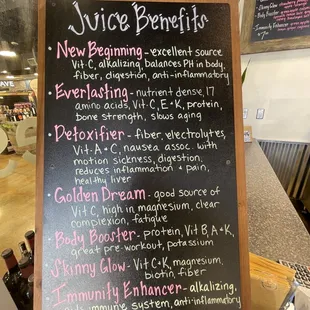 Juice Benefits
New Beginning - excellent source
Vit-C, alkalizing, balances PH in body,
fiber, digestion, anti-inflammatory
Everlasting - nutrient dense, 17
amino acids, Vit-C, E+K, protein,
bone strength, slows aging
Detoxifier - fiber, electrolytes,
Vit-A+C, nausea assoc. with
motion sickness, digestion,
reduces inflammation + pain,
healthy liver
Golden Dream - good source of
Vit C, high in magnesium, clear
complexion, fatigue
Body Booster - protein, Vit B, A+K,
great pre-workout, potassium
Skinny Glow - Vit C+K, magnesium,
biotin, fiber
Immunity Enhancer - alkalizing,
immune system, anti-inflammatory